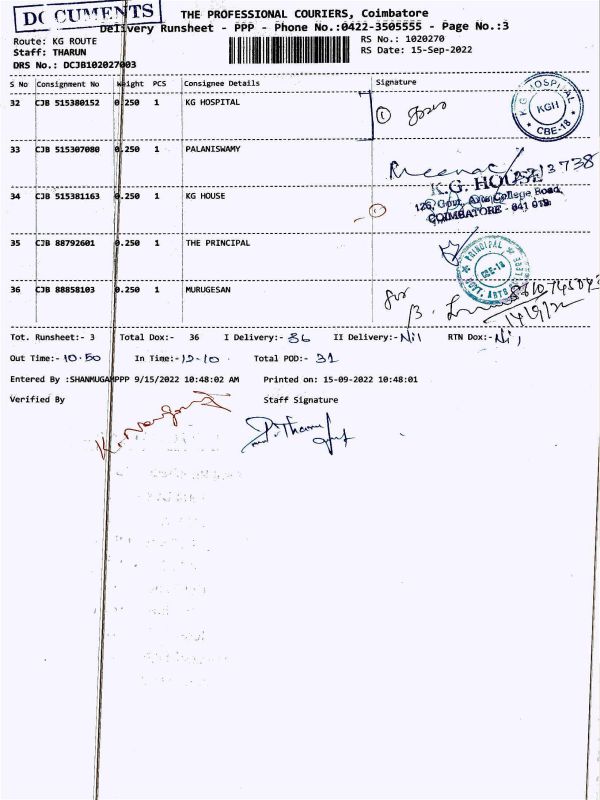 DOCUMENTS
THE PROFESSIONAL COURIERS, Coimbatore
Delivery Runsheet - PPP - Phone No.:0422-3505555 - Page No.:3
Route: KG ROUTE
Staff: THARUN
DRS No.: DCJB102027003
RS No.: 1020270
RS Date: 15-Sep-2022
S No Consignment No Weight PCS Consignee Details Signature
32 CJB 515380152 0.250 1 KG HOSPITAL 1
K G HOSPITAL KGH * CBE-18 *
33 CJB 515307080 0.250 1 PALANISWAMY
34 CJB 515381163 0.250 1 KG HOUSE 1
K.G. HOUSE
126, Govt. Arts College Road,
COIMBATORE - 641 018
35 CJB 88792601 0.250 1 THE PRINCIPAL
PRINCIPAL CBE-18 GOVT. ARTS COLLEGE
36 CJB 88858103 0.250 1 MURUGESAN for
Tot. Runsheet:- 3 Total Dox:- 36 I Delivery:- 36 II Delivery:- Nil RTN Dox:- Nil
Out Time:- 10.50 In Time:- 12-10 Total POD:- 31
Entered By :SHANMUGAMPPP 9/15/2022 10:48:02 AM Printed on: 15-09-2022 10:48:01
Verified By Staff Signature